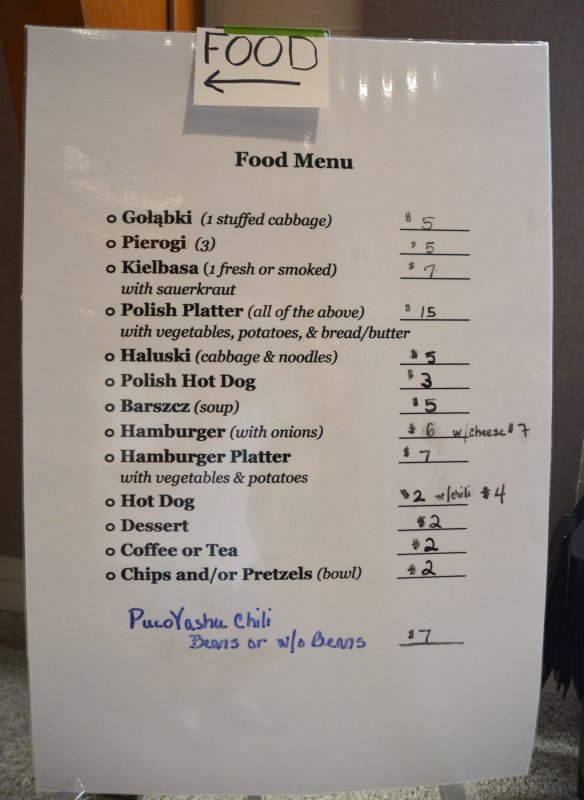 FOOD
←
Food Menu
o Gołąbki (1 stuffed cabbage) $ 5
o Pierogi (3) $ 5
o Kielbasa (1 fresh or smoked) $ 7
with sauerkraut
o Polish Platter (all of the above) $ 15
with vegetables, potatoes, & bread/butter
o Haluski (cabbage & noodles) $ 5
o Polish Hot Dog $ 3
o Barszcz (soup) $ 5
o Hamburger (with onions) $ 6 w/cheese $ 7
o Hamburger Platter $ 7
with vegetables & potatoes
o Hot Dog $ 2 w/chili $ 4
o Dessert $ 2
o Coffee or Tea $ 2
o Chips and/or Pretzels (bowl) $ 2
Chili
Beans or w/o Beans $ 7